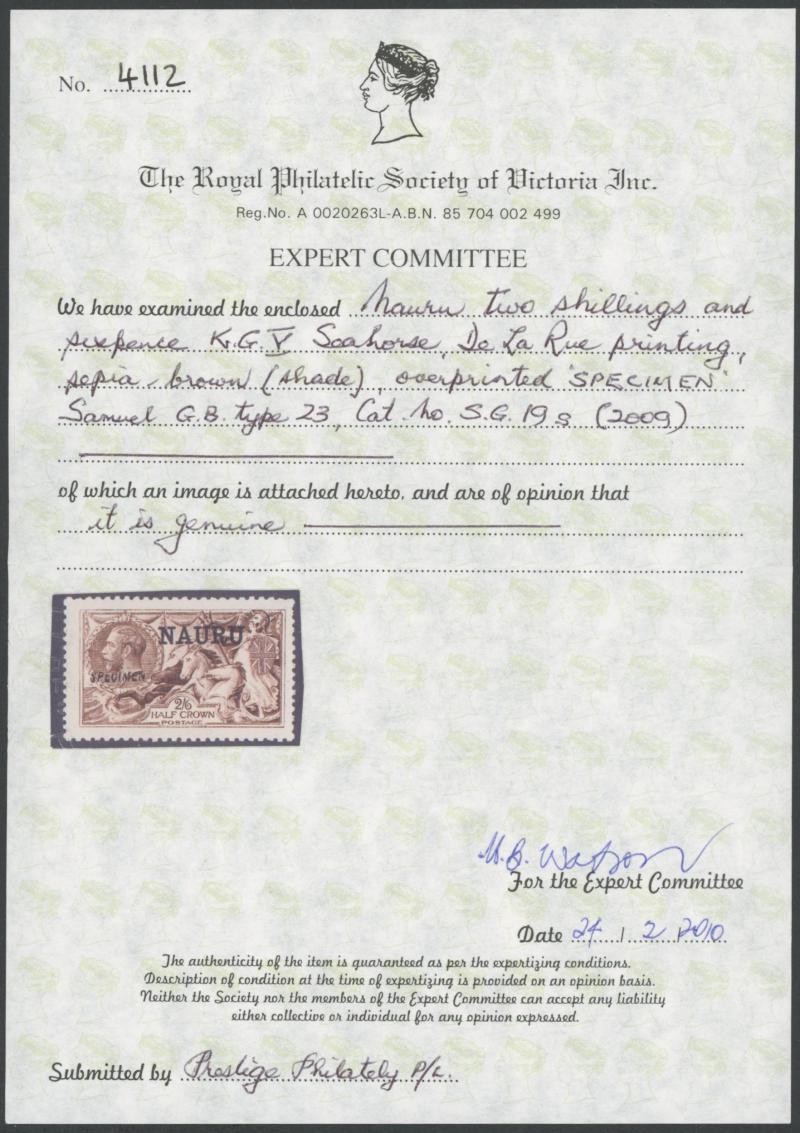 No. 4112
The Royal Philatelic Society of Victoria Inc.
Reg.No. A 0020263L-A.B.N. 85 704 002 499
EXPERT COMMITTEE
We have examined the enclosed Nauru two shillings and
sixpence K.G.V Seahorse, De La Rue printing,
sepia-brown (shade), overprinted 'SPECIMEN'
Samuel G.B. type 23, Cat. No. S.G. 19s (2009)
of which an image is attached hereto, and are of opinion that
it is genuine
NAURU
SPECIMEN
2/6
HALF CROWN
POSTAGE
Watson
For the Expert Committee
Date 24 / 2 / 2010
The authenticity of the item is guaranteed as per the expertizing conditions.
Description of condition at the time of expertizing is provided on an opinion basis.
Neither the Society nor the members of the Expert Committee can accept any liability
either collective or individual for any opinion expressed.
Submitted by Prestige Philately P/L.